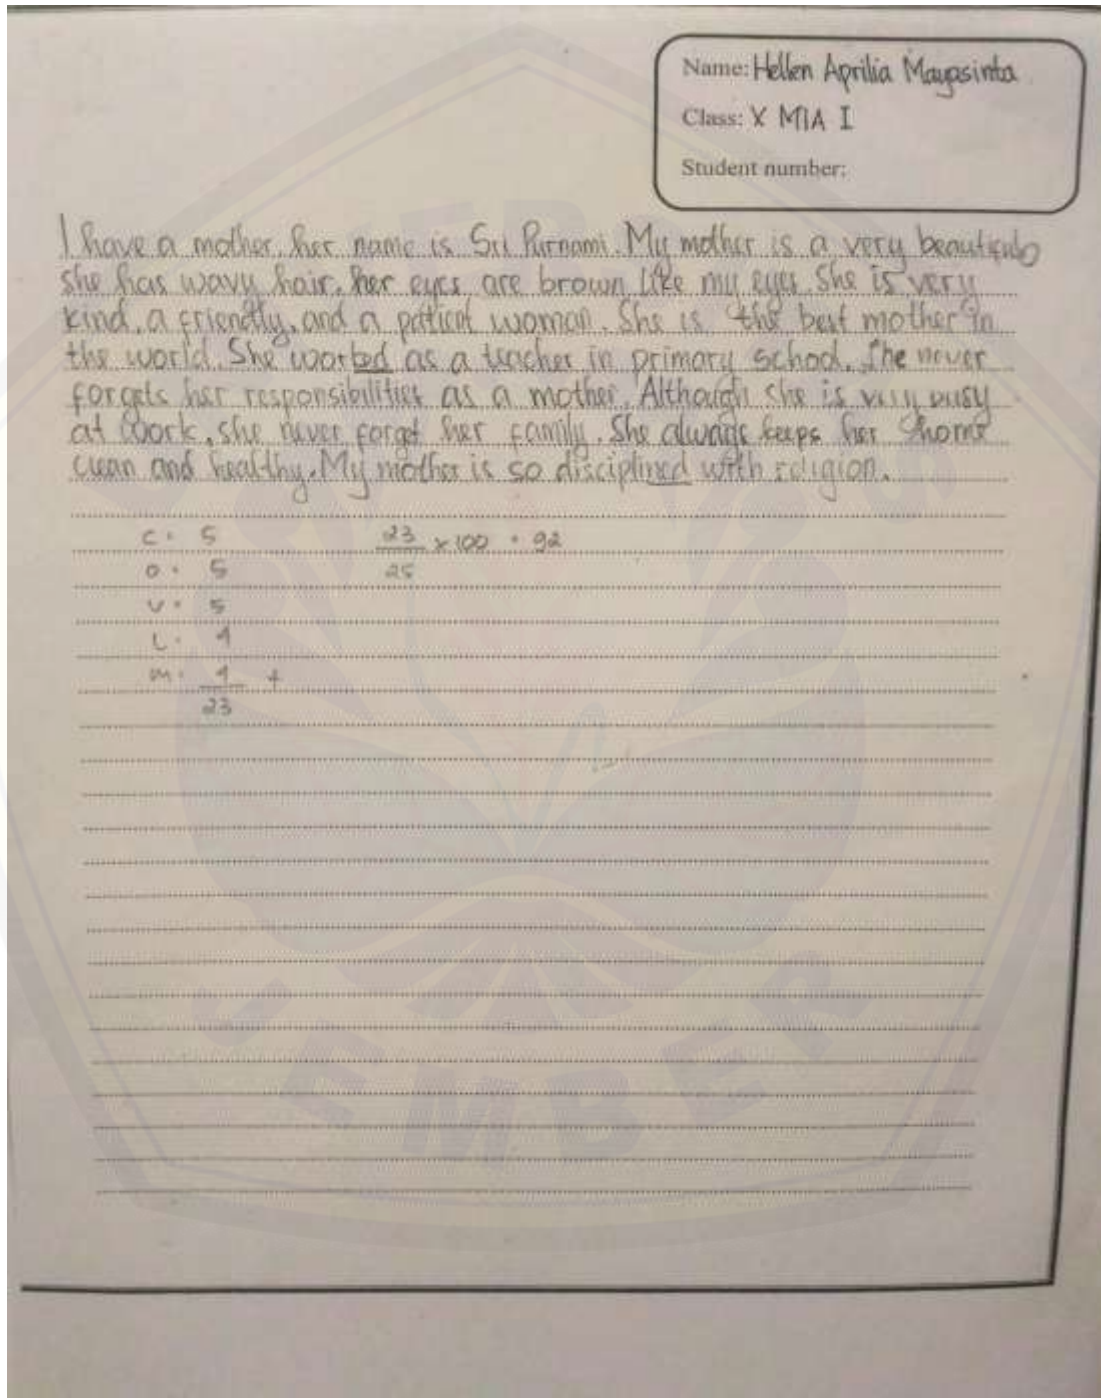 Name: Hellen Aprilia Mayasinta
Class: X MIA I
Student number:
I have a mother, her name is Sri Purnami. My mother is a very beautiful,
she has wavy hair, her eyes are brown like my eyes. She is very
kind, a friendly, and a patient woman. She is the best mother in
the world. She worked as a teacher in primary school. She never
forgets her responsibilities as a mother. Although she is very busy
at work, she never forget her family. She always keeps her home
clean and healthy. My mother is so disciplined with religion.
C = 5
23/25 x 100 = 92
O = 5
V = 5
L = 4
M = 4 +
23
JEMBER